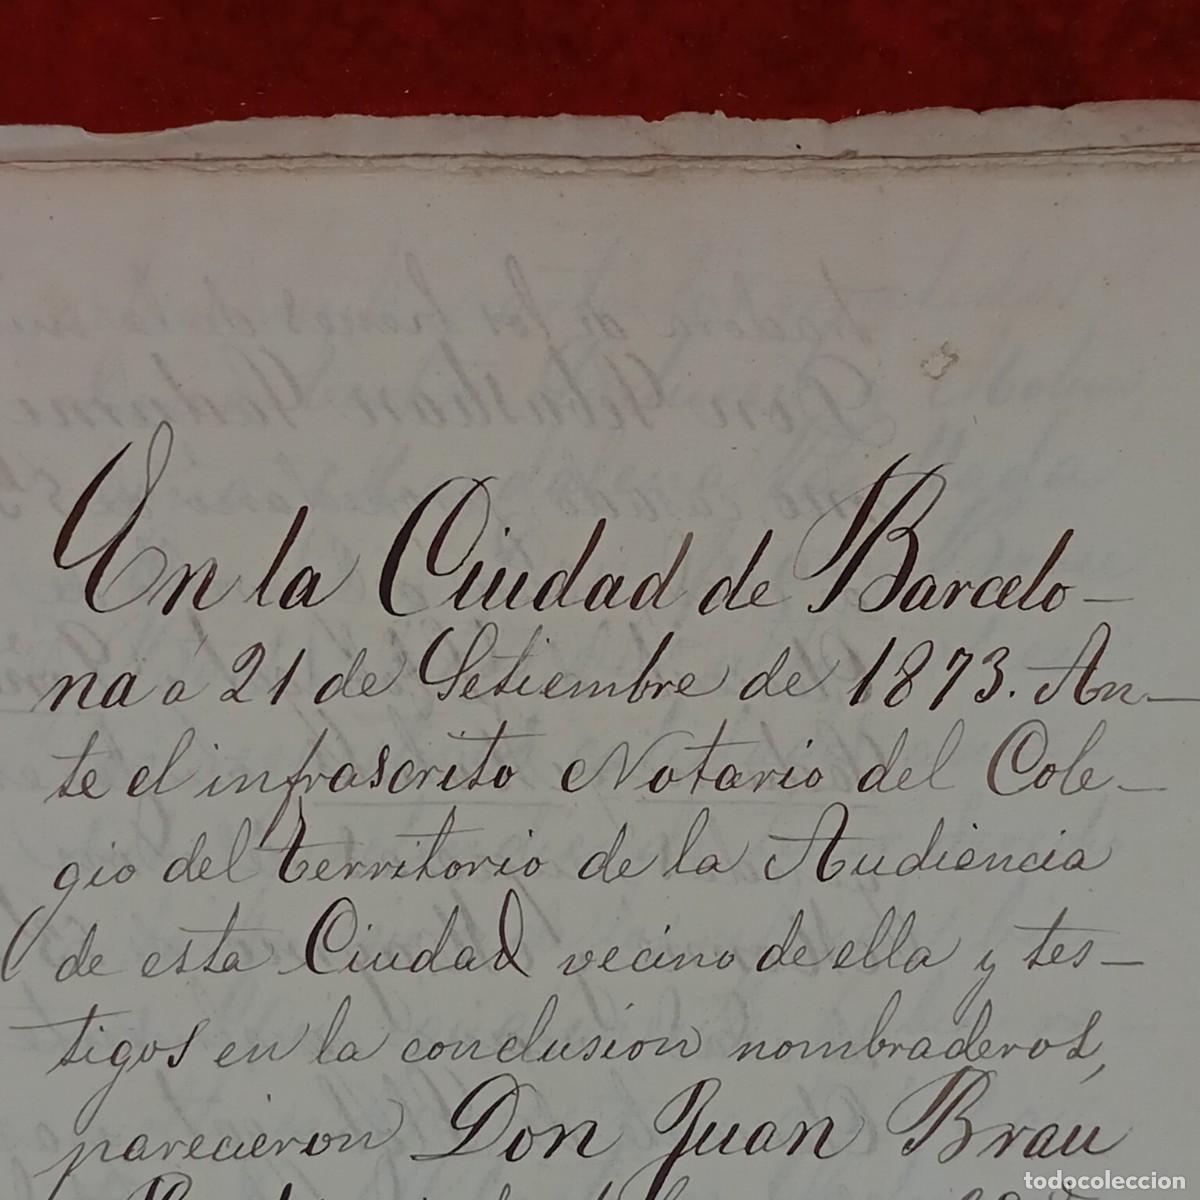 En la Ciudad de Barcelo-
na á 21 de Setiembre de 1873. An-
te el infrascrito Notario del Cole-
gio del territorio de la Audiencia
de esta Ciudad vecino de ella y tes-
tigos en la conclusion nombraderos,
parecieron Don Juan Brau
todocoleccion